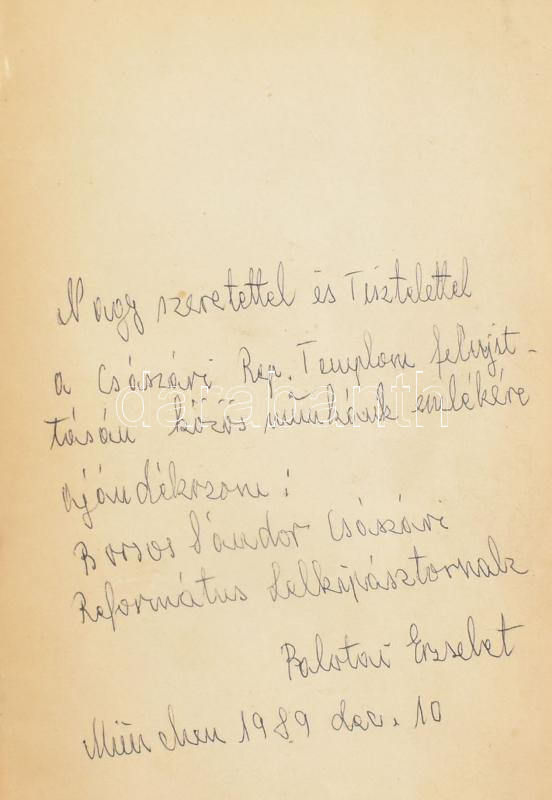 Nagy szeretettel és Tisztelettel
a Császári Ref. Templom felujit-
tásán közös munkánk emlékére
ajándékozom:
Borsos Sándor Császári
Református Lelkipásztornak
Balotai Erzsebet
München 1989 dec. 10
darabanth